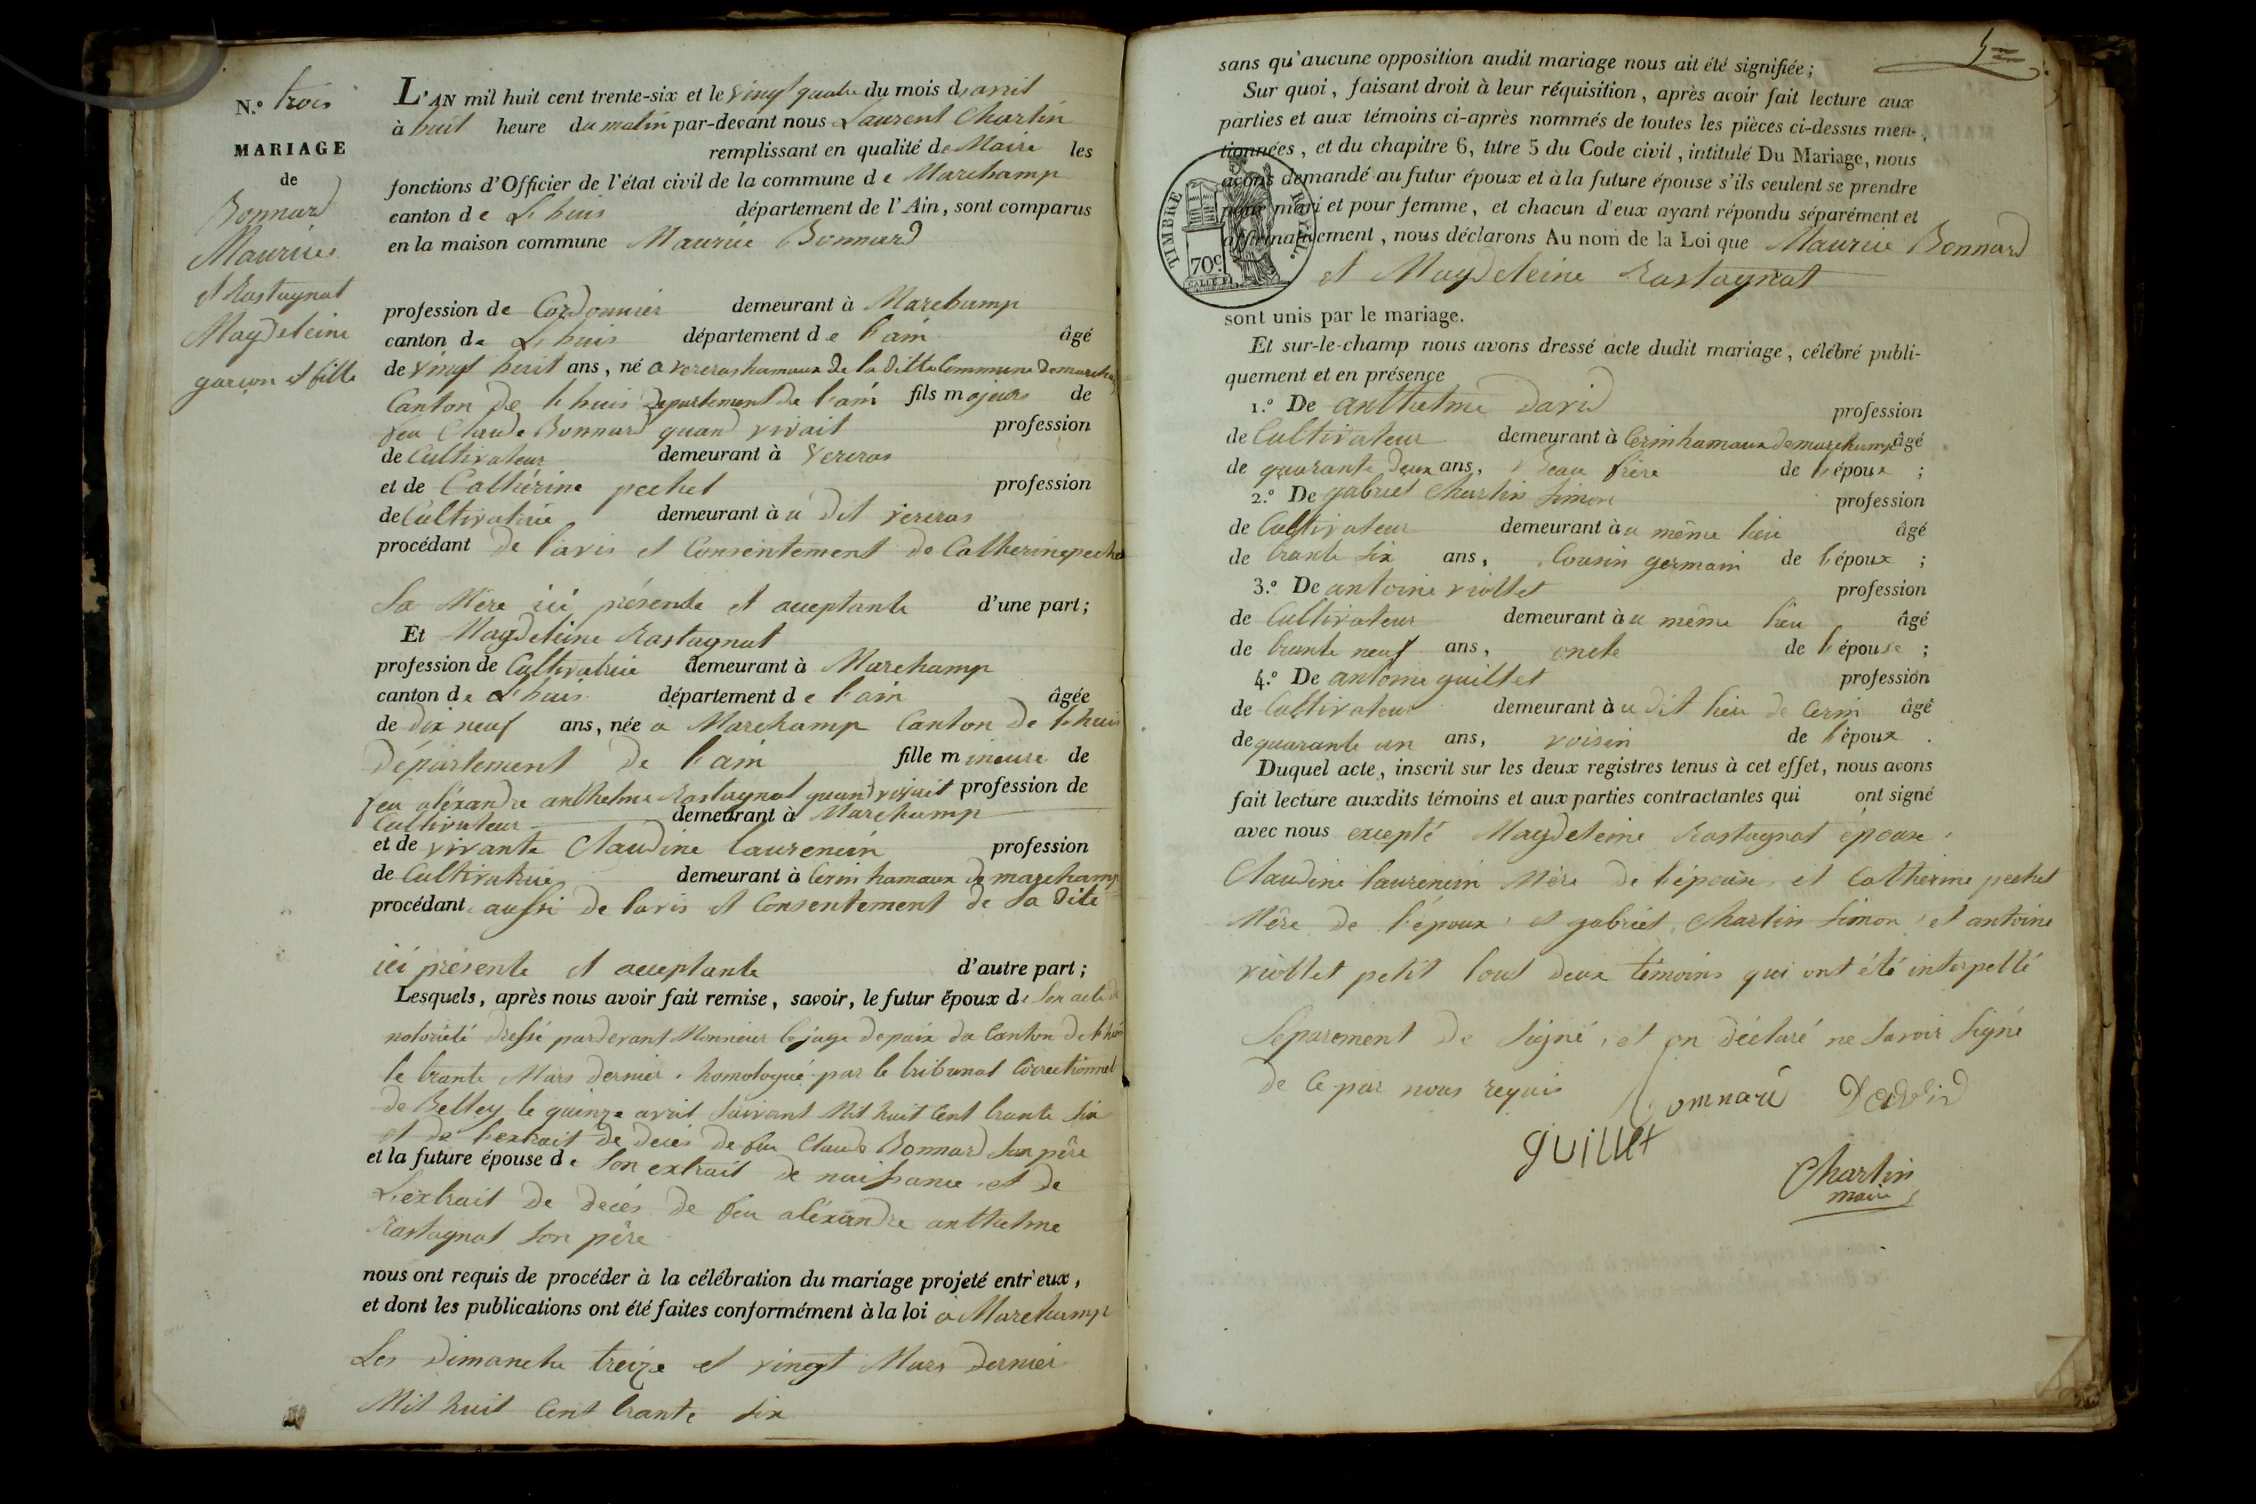 N.º trois
MARIAGE
de
Bonnard
Maurice
et Rastagnat
Magdeleine
garçon et fille
L'AN mil huit cent trente-six et le vingt quatre du mois d'avril
à huit heure du matin par-devant nous Laurent Chartin
remplissant en qualité de Maire les
fonctions d'Officier de l'état civil de la commune de Marchamp
canton de Lhuis département de l'Ain, sont comparus
en la maison commune Maurice Bonnard
profession de Cordonnier demeurant à Marchamp
canton de Lhuis département de l'ain âgé
de vingt huit ans, né a vereras hamaux de la ditte Commune de
Canton de lhuis département de l'ain fils majeurs de
feu Claude Bonnard quand vivait profession
de Cultivateur demeurant à vereras
et de Cathérine pechet profession
de Cultivatrice demeurant à u dit vereras
procédant de l'avis et Consentement de Catherine
Sa Mère ici présente et acceptante d'une part;
Et Magdeleine Rastagnat
profession de Cultivatrice demeurant à Marchamp
canton de Lhuis département de l'ain âgée
de dix neuf ans, née a Marchamp Canton de lhuis
département de l'ain fille mineure de
feu aléxandre anthelme Rastagnat quand vivait profession de
Cultivateur demeurant à Marchamp
et de vivante Claudine laurencin profession
de Cultivatrice demeurant à Cerin hamaux de marchamp
procédant aussi de lavis et Consentement de Sa dite
ici présente et acceptante d'autre part;
Lesquels, après nous avoir fait remise, savoir, le futur époux de Son acte de
notoriété dressé pardevant Monsieur le juge de paix du Canton de lhuis
le trante Mars dernier. homologué par le tribunal Correctionnel
de Belley le quinze avril Suivant Mil huit Cent trante Six
et de l'extrait de décès de feu Claude Bonnard Son père
et la future épouse de Son extrait de naissance et de
L'extrait de décés de feu aléxandre anthelme
Rastagnat Son père
nous ont requis de procéder à la célébration du mariage projeté entr'eux,
et dont les publications ont été faites conformément à la loi à Marchamp
Les dimanche treize et vingt Mars dernier
Mil huit Cent trante Six
sans qu'aucune opposition audit mariage nous ait été signifiée;
Sur quoi, faisant droit à leur réquisition, après avoir fait lecture aux
parties et aux témoins ci-après nommés de toutes les pièces ci-dessus men-
tionnées, et du chapitre 6, titre 5 du Code civil, intitulé Du Mariage, nous
avons demandé au futur époux et à la future épouse s'ils veulent se prendre
pour mari et pour femme, et chacun d'eux ayant répondu séparément et
affirmativement, nous déclarons Au nom de la Loi que Maurice Bonnard
et Magdeleine Rastagnat
TIMBRE ROYAL.
70c
sont unis par le mariage.
Et sur-le-champ nous avons dressé acte dudit mariage, célébré publi-
quement et en présence
1.º De anthelme david profession
de Cultivateur demeurant à Cerin hamaux de marchamp âgé
de quarante deux ans, beau frère de l'époux ;
2.º De gabriel Chartin Simon profession
de Cultivateur demeurant à u même lieu âgé
de trante Six ans, Cousin germain de l'époux ;
3.º De antoine viollet profession
de Cultivateur demeurant à u même lieu âgé
de trante neuf ans, oncle de l'épouse ;
4.º De antoine guillet profession
de Cultivateur demeurant à u dit lieu de Cerin âgé
de quarante un ans, voisin de l'époux .
Duquel acte, inscrit sur les deux registres tenus à cet effet, nous avons
fait lecture auxdits témoins et aux parties contractantes qui ont signé
avec nous excepté Magdeleine Rastagnat épouse
Claudine laurencin Mère de l'épouse, et Catherine pechet
Mère de l'époux et gabriel Chartin Simon et antoine
viollet petit tout deux témoins qui ont été interpellé
Separement de Signé, et on déclaré ne Savoir Signé
de Ce par nous requis
Bonnard David
guillet
Chartin
maire